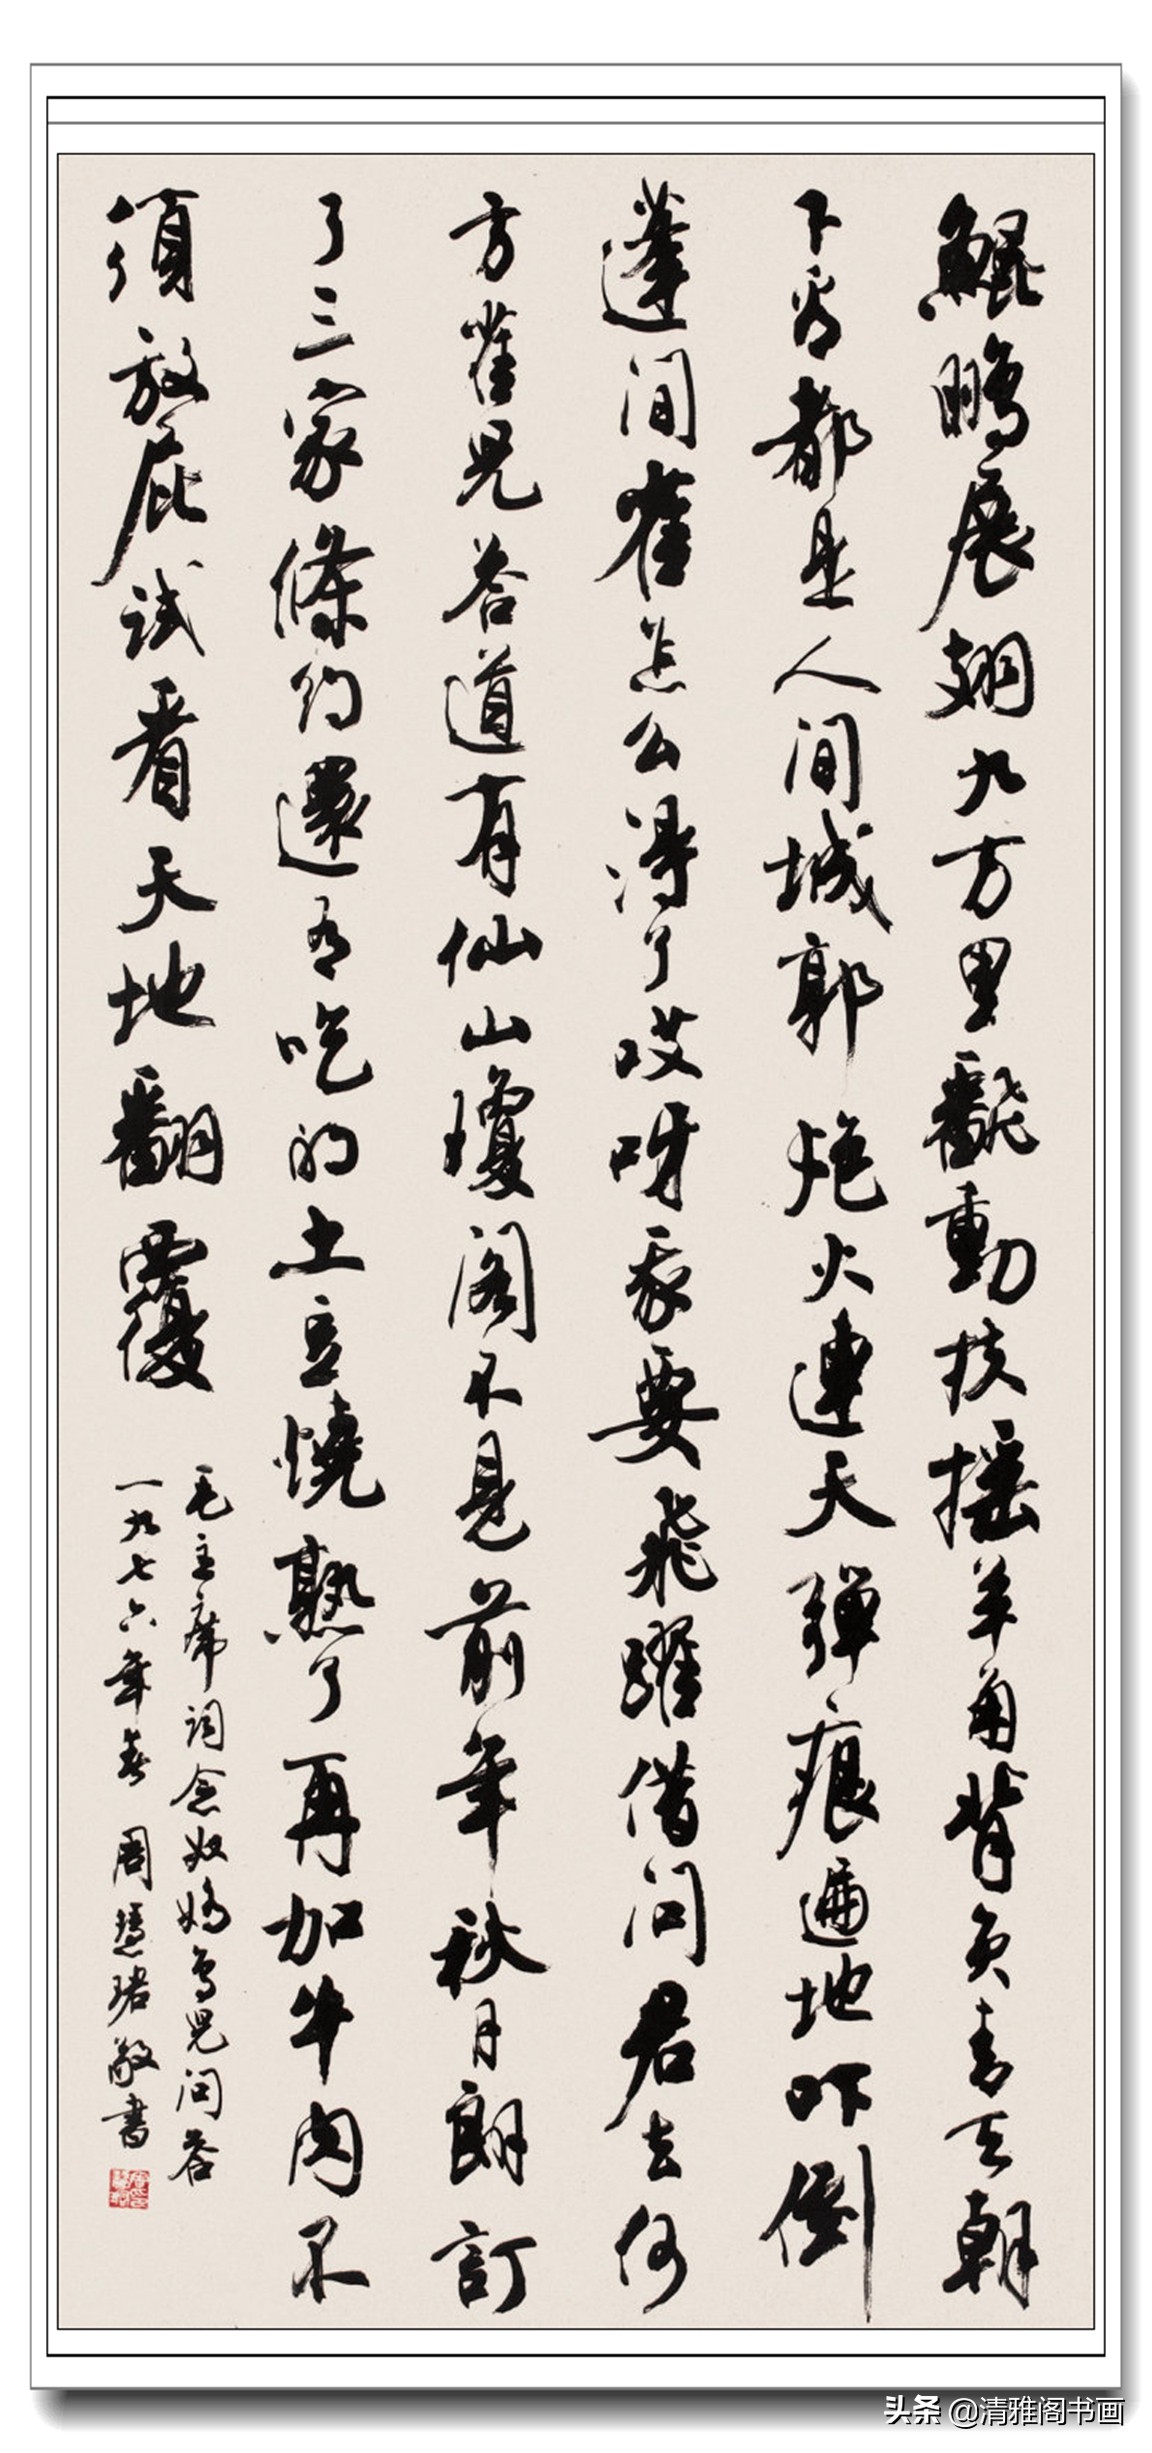 鯤鵬展翅九万里飜動扶摇羊角背負青天朝
下看都是人间城郭炮火連天彈痕遍地吓倒
蓬间雀怎么得了哎呀我要飛躍借问君去何
方雀兒答道有仙山瓊阁不見前年秋月朗訂
了三家條約還有吃的土豆燒熟了再加牛肉不
須放屁試看天地翻覆
毛主席词念奴嬌鸟兒问答
一九七六年春 周慧珺敬書
头条 @清雅阁书画